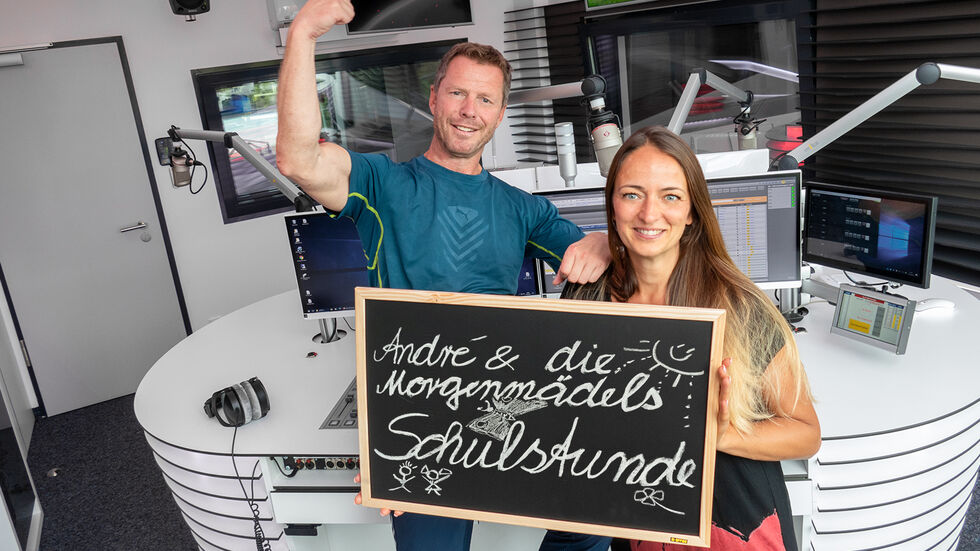 André & die
Morgenmädels
Schulstunde